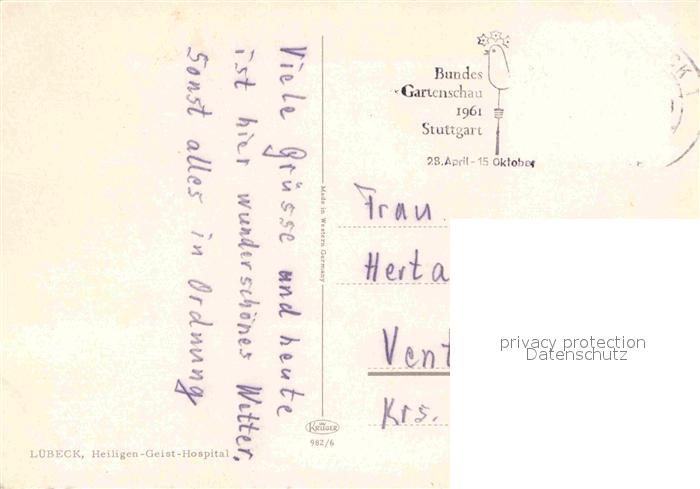 Viele Grüsse und heute
ist hier wunderschönes Wetter.
Sonst alles in Ordnung
Bundes
Gartenschau
1961
Stuttgart
28. April - 15 Oktober
Made in Western Germany
Frau
Herta
Vent
Krs.
privacy protection
Datenschutz
KRÜGER
982/6
LÜBECK, Heiligen-Geist-Hospital